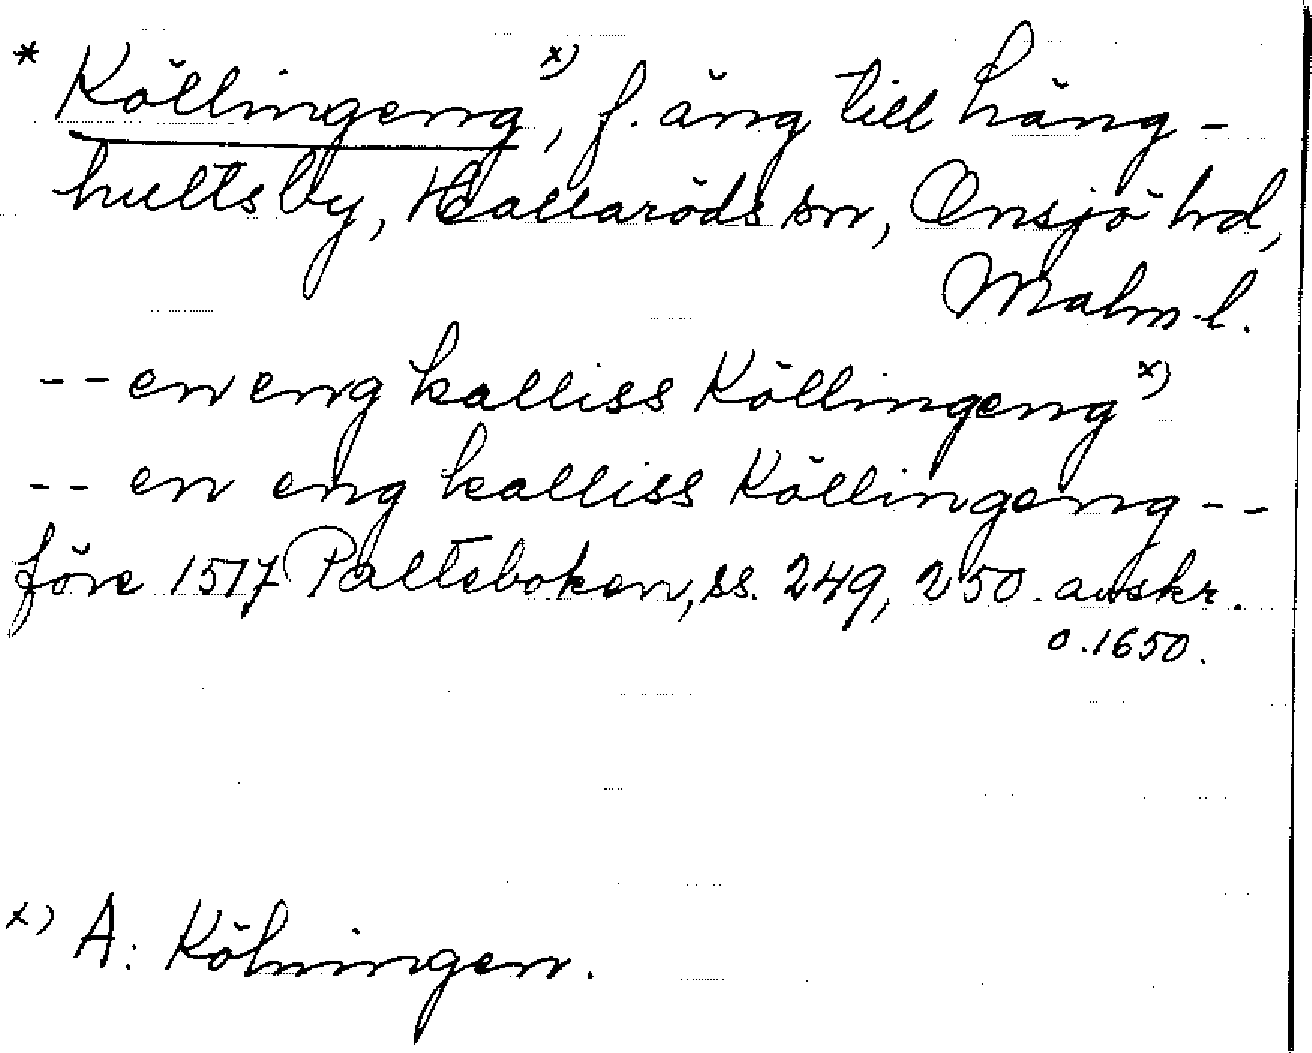 * Köllingeng x), f. äng till häng-
hultsby, Hallaröds sn, Onsjö hd,
Malm. l.
-- en eng kalliss Köllingeng x)
-- en eng kalliss Köllingeng --
före 1517 Palteboken, ss. 249, 250. avskr.
o. 1650.
x) A: Kölningen.